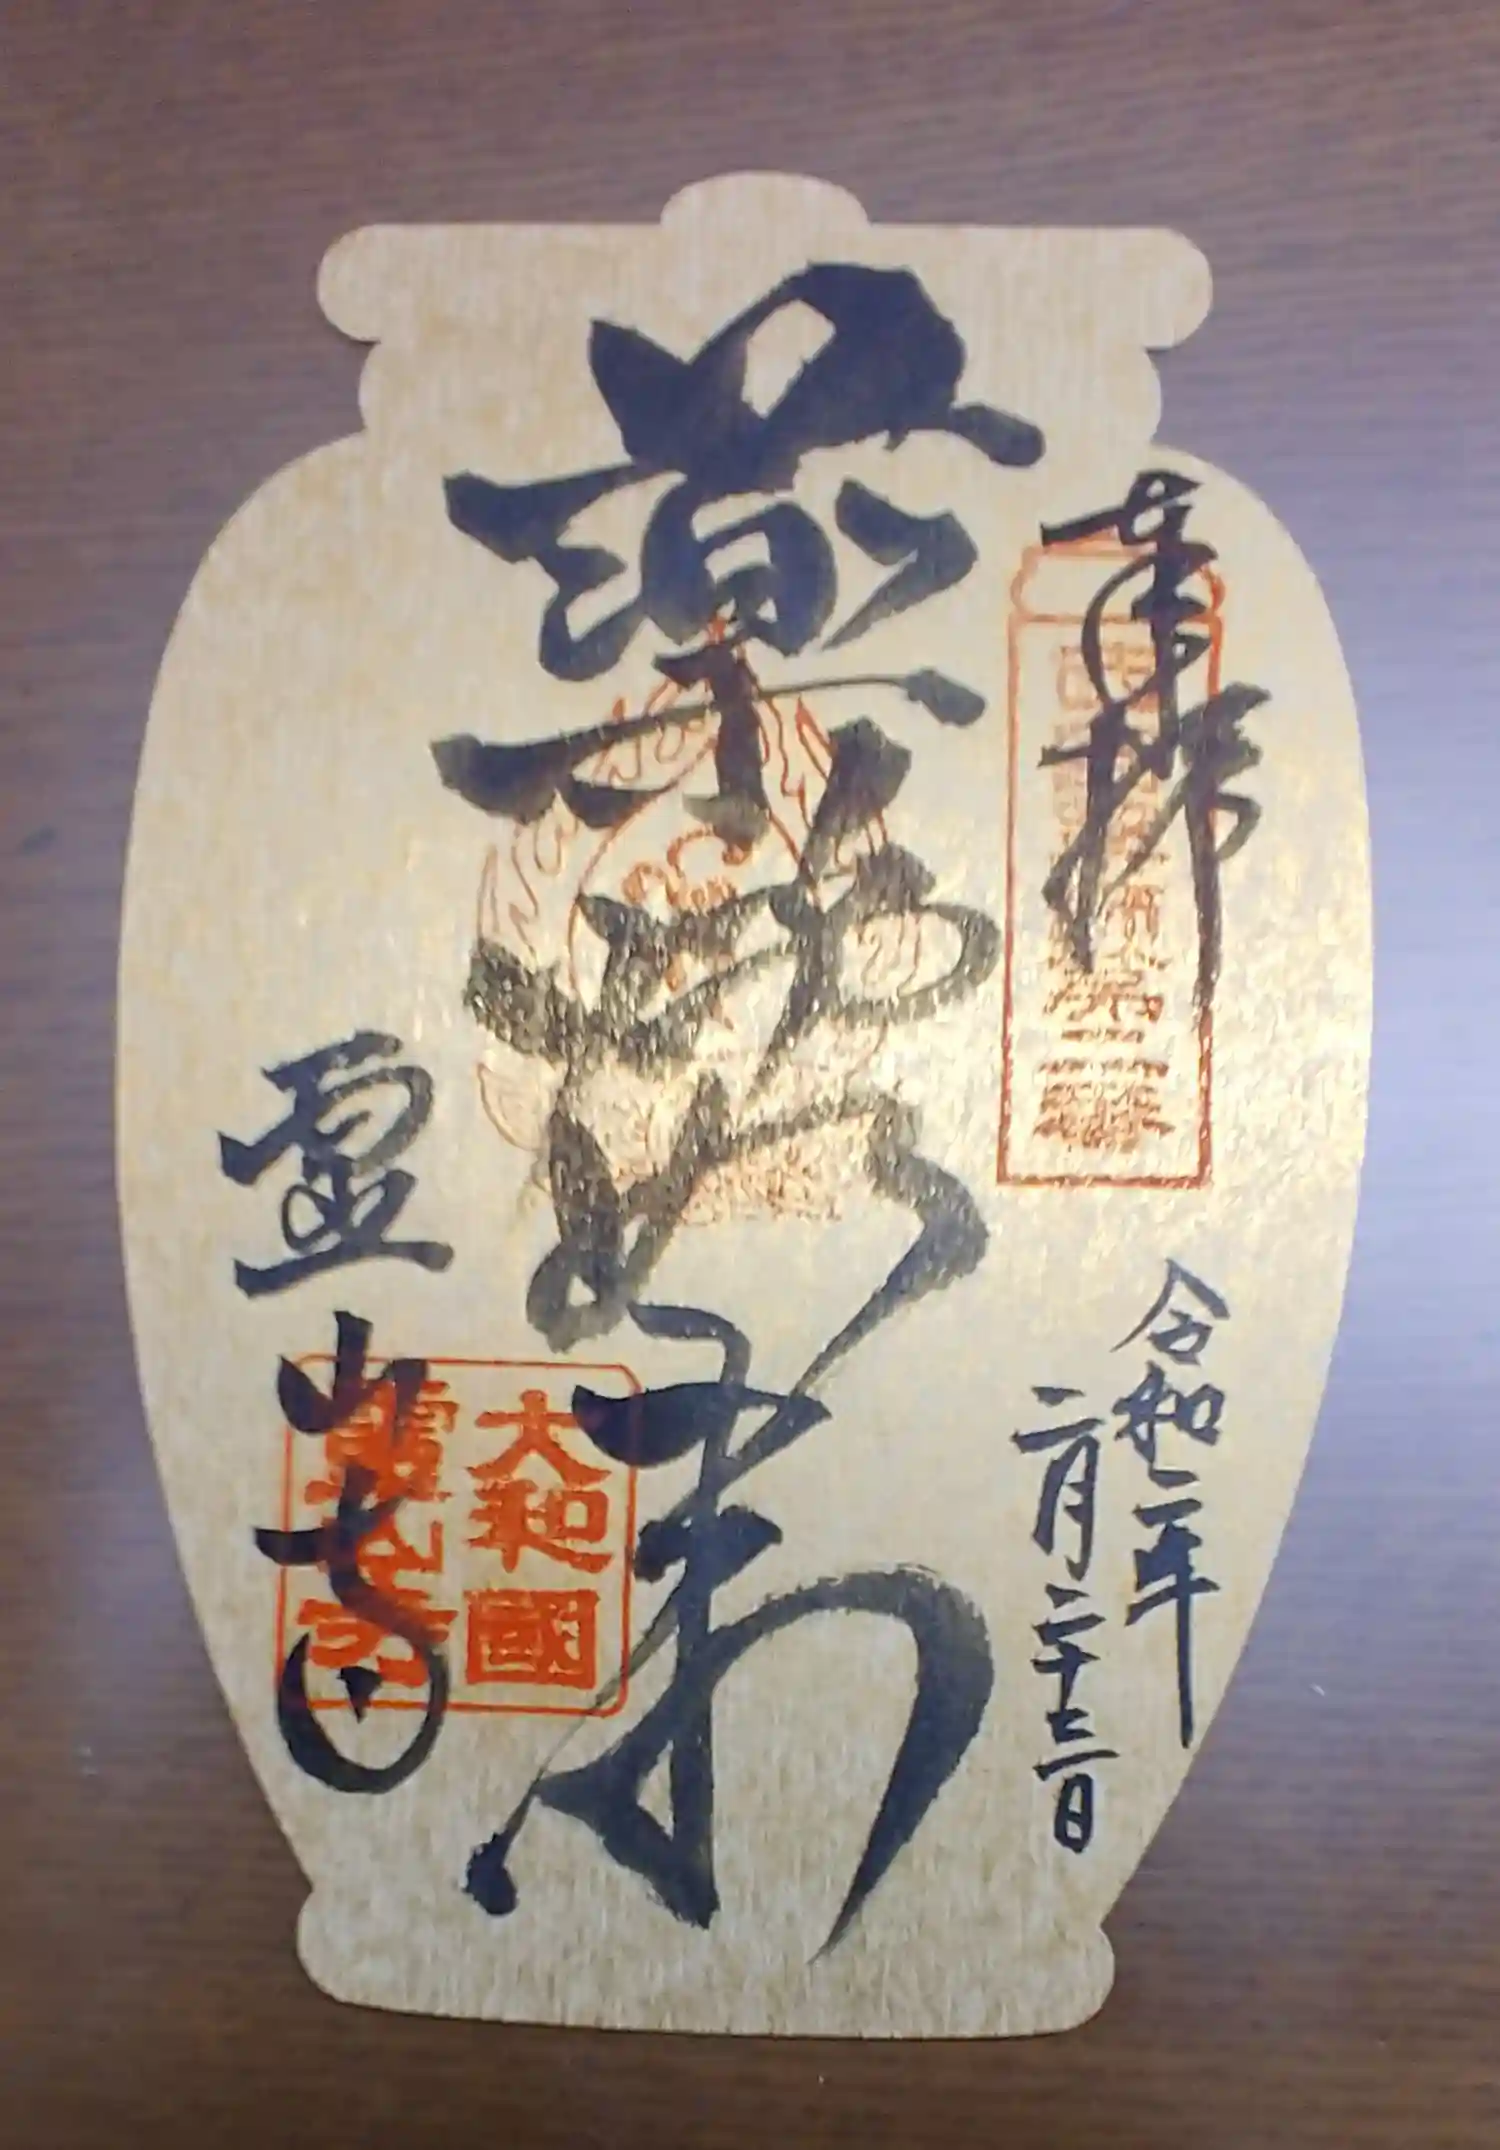 奉拝
令和二年
二月二十三日
薬師如来
霊山寺
大和國
霊山寺